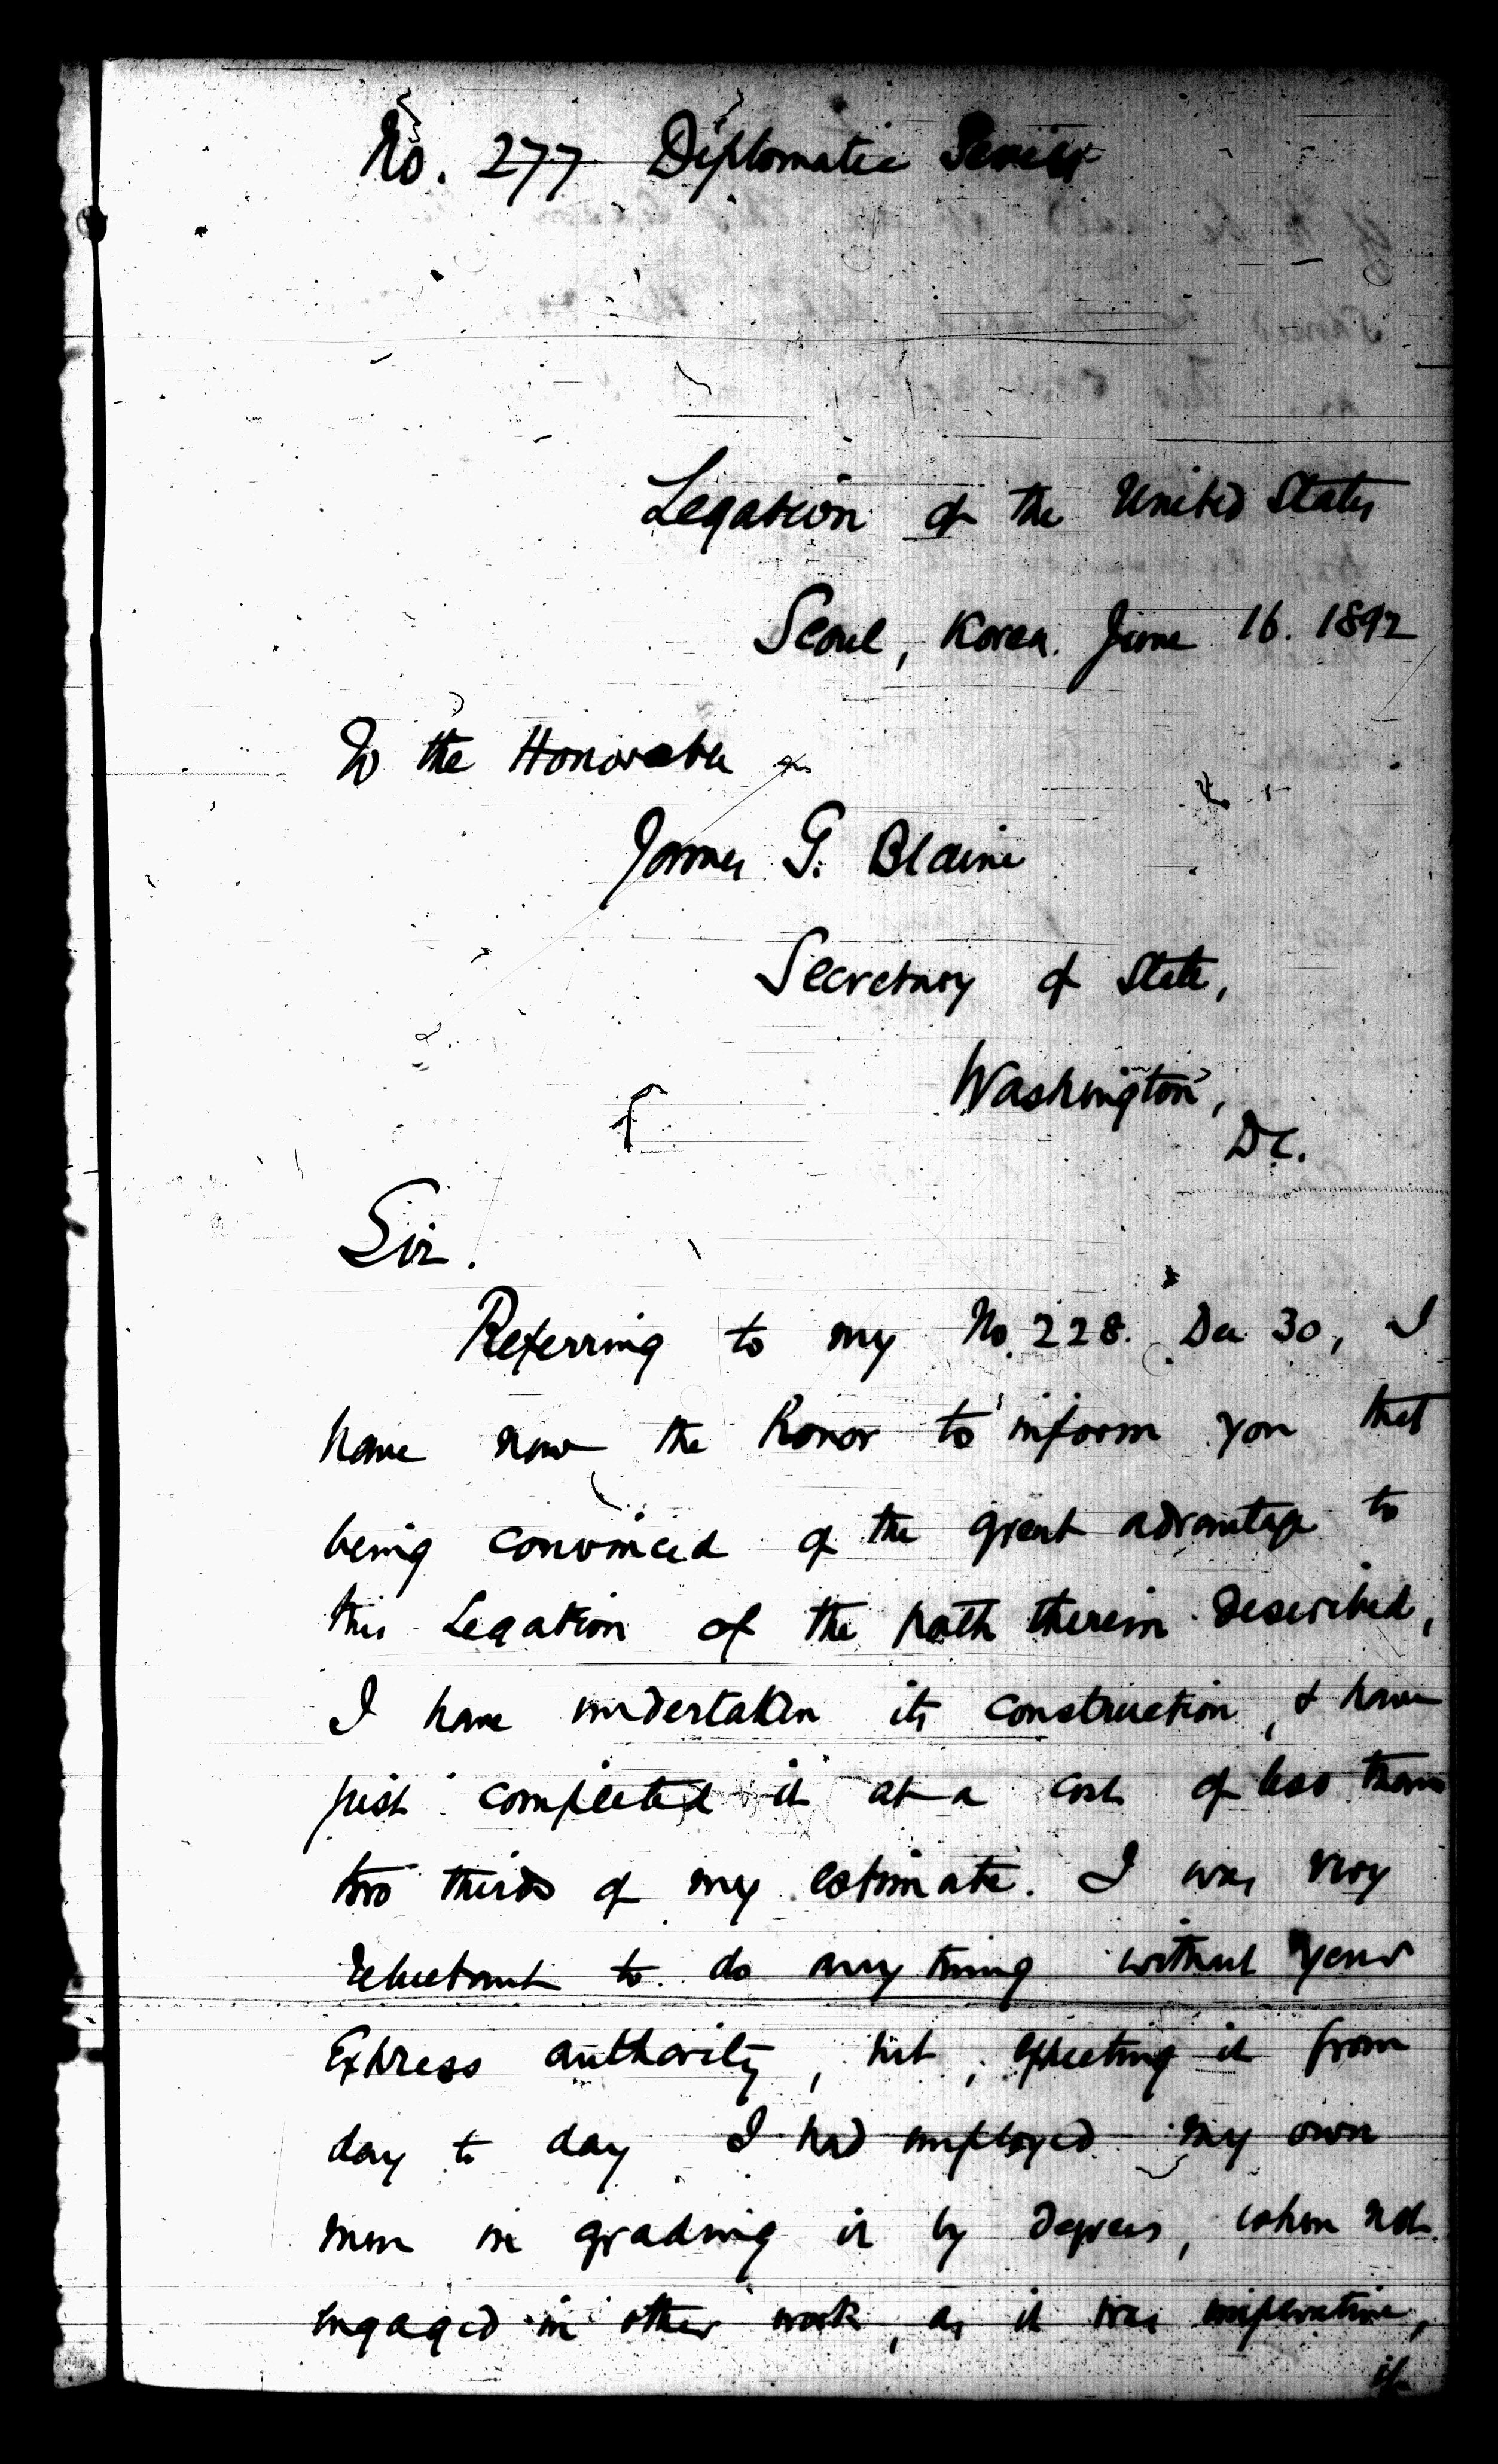 No. 277 Diplomatic Series
Legation of the United States
Seoul, Korea. June 16. 1892
To the Honorable
James G. Blaine
Secretary of State,
Washington,
D.C.
Sir.
Referring to my No. 228. Dec 30, I
have now the honor to inform you that
being convinced of the great advantage to
this Legation of the path therein described,
I have undertaken its construction, & have
just completed it at a cost of less than
two thirds of my estimate. I was very
reluctant to do any thing without your
express authority, but, expecting it from
day to day I had employed my own
men in grading it by degrees, when not
engaged in other work, as it was imperative,
if